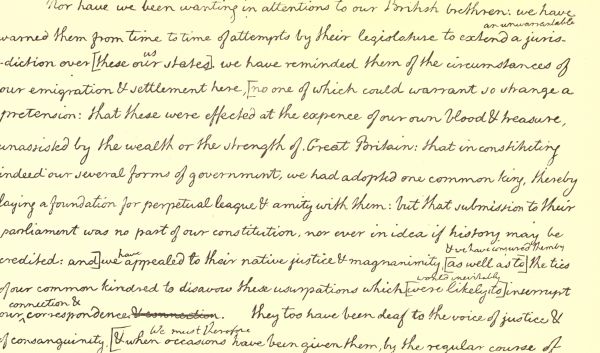 Nor have we been wanting in attentions to our British brethren: we have
an unwarrantable
warned them from time to time of attempts by their legislature to extend a juris-
us
-diction over [these our states]. we have reminded them of the circumstances of
our emigration & settlement here, [no one of which could warrant so strange a
pretension: that these were effected at the expence of our own blood & treasure,
unassisted by the wealth or the strength of Great Britain: that in constituting
indeed our several forms of government, we had adopted one common king, thereby
laying a foundation for perpetual league & amity with them: but that submission to their
parliament was no part of our constitution, nor ever in idea if history may be
have & we have conjured them by
credited: and] we appealed to their native justice & magnanimity [as well as to] the ties
would inevitably
of our common kindred to disavow these usurpations which [were likely to] interrupt
connection &
our correspondence & connection. they too have been deaf to the voice of justice &
We must therefore
of consanguinity, [& when occasions have been given them, by the regular course of